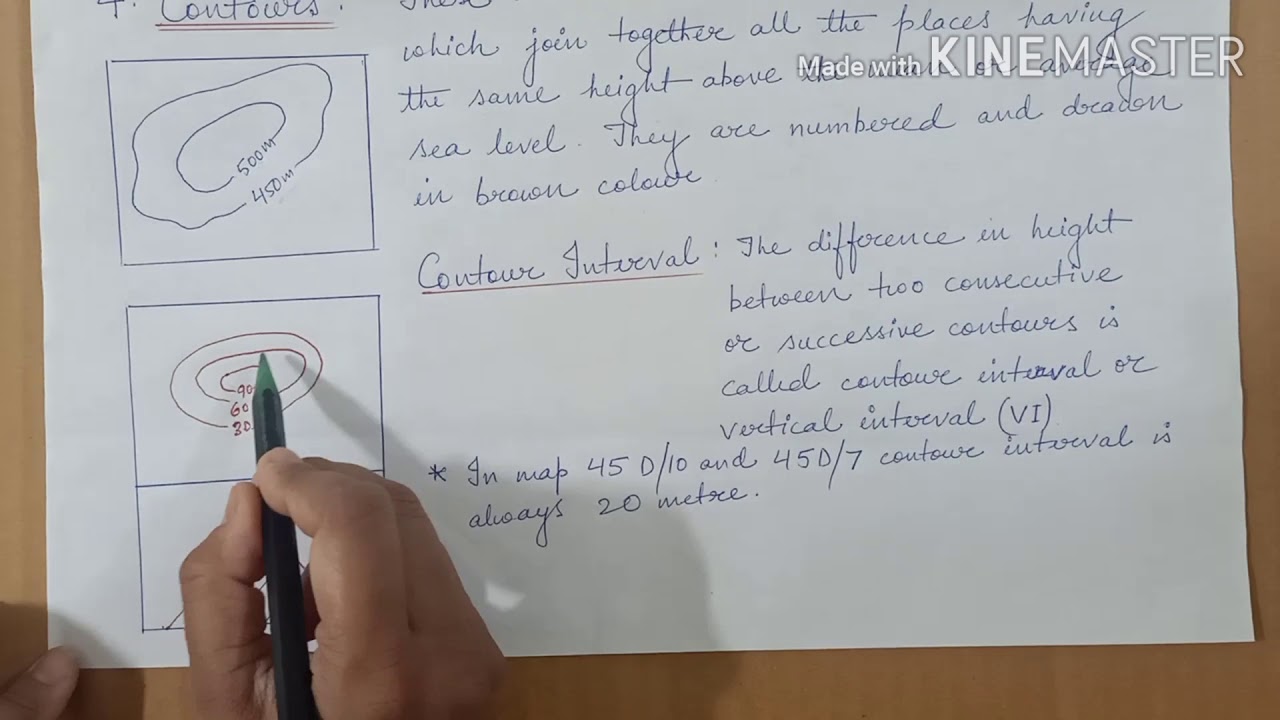 4. Contours : These
which join together all the places having
Made with KINEMASTER
the same height above the mean or average
sea level. They are numbered and drawn
in brown colour
500m
450m
Contour Interval : The difference in height
between two consecutive
or successive contours is
called contour interval or
vertical interval (VI)
90
60
30
* In map 45 D/10 and 45D/7 contour interval is
always 20 metre.